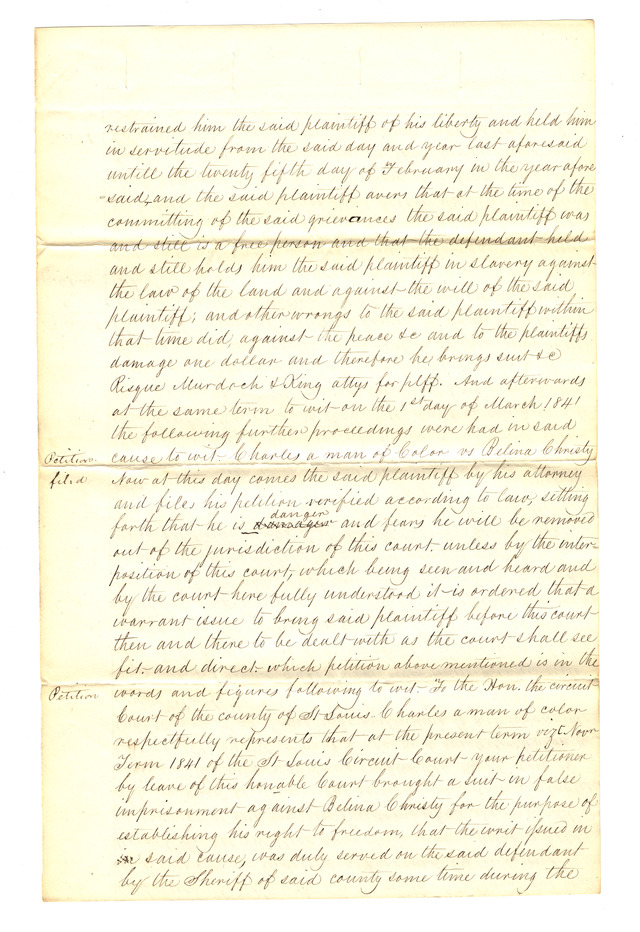 restrained him the said plaintiff of his liberty and held him
in servitude from the said day and year last aforesaid
untill the twenty fifth day of February in the year afore
said, and the said plaintiff avers that at the time of the
committing of the said grievances the said plaintiff was
and still is a free person and that the defendant held
and still holds him the said plaintiff in slavery against
the law of the land and against the will of the said
plaintiff; and other wrongs to the said plaintiff within
that time did, against the peace &c and to the plaintiffs
damage one dollar and therefore he brings suit &c
Risque Murdoch & King attys for plff. And afterwards
at the same term to wit on the 1st day of March 1841
the following further proceedings were had in said
Petition cause to wit Charles a man of Color vs Belina Christy
filed Now at this day comes the said plaintiff by his attorney
and files his petition verified according to law, setting
danger
forth that he is and fears he will be removed
out of the jurisdiction of this court unless by the inter-
position of this court, which being seen and heard and
by the court here fully understood it is ordered that a
warrant issue to bring said plaintiff before this court
then and there to be dealt with as the court shall see
fit and direct which petition above mentioned is in the
Petition words and figures following to wit To the Hon. the circuit
Court of the county of St Louis Charles a man of color
respectfully represents that at the present term vizt Novr
Term 1841 of the St Louis Circuit Court your petitioner
by leave of this honable Court brought a suit in false
imprisonment against Belina Christy for the purpose of
establishing his right to freedom, that the writ issued in
in said cause, was duly served on the said defendant
by the Sheriff of said county some time during the